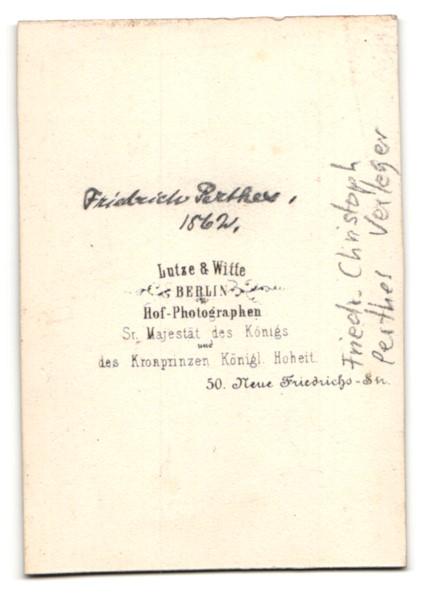 Friedrich Perthes,
1862,
Lutze & Witte
BERLIN
Hof-Photographen
Sr. Majestät des Königs
und
des Kronprinzen Königl. Hoheit.
50. Neue Friedrichs-Str.
Friedr. Christoph
Perthes Verleger